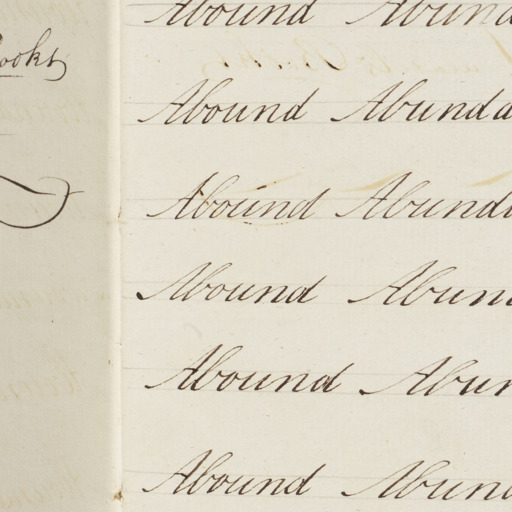 Abound Abund
ooks
Abound Abunda
Abound Abund
Abound Abun
Abound Abun
Abound Abun